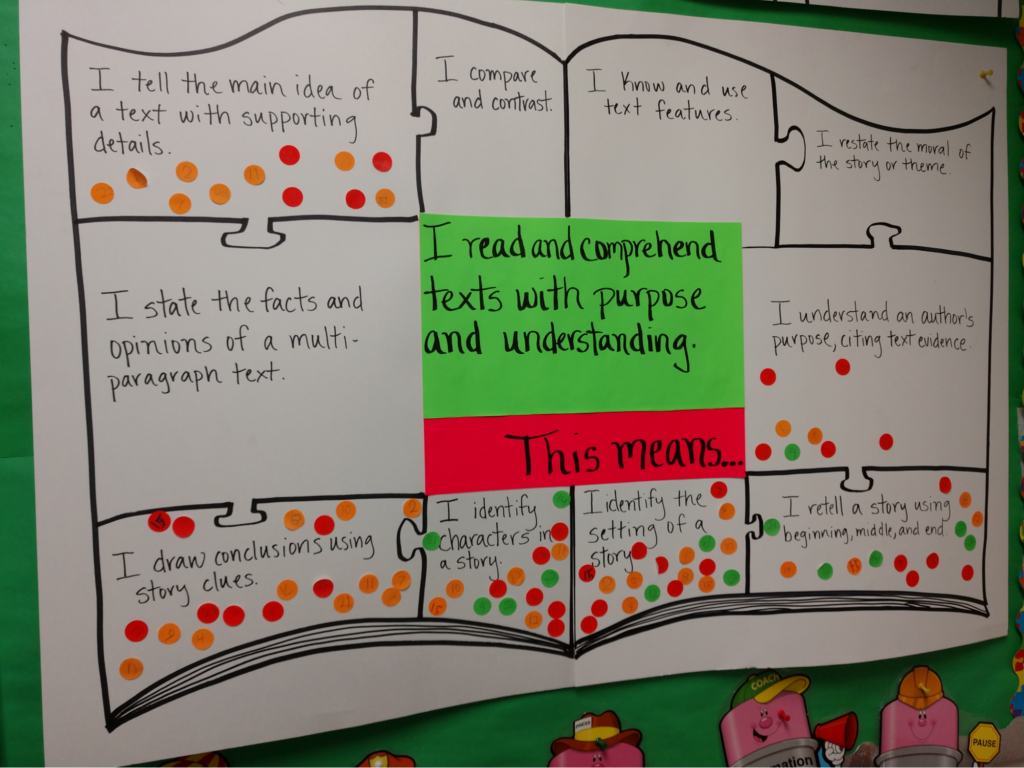 I tell the main idea of
a text with supporting
details.
I compare
and contrast.
I know and use
text features.
I restate the moral of
the story or theme.
I state the facts and
opinions of a multi-
paragraph text.
I read and comprehend
texts with purpose
and understanding.
This means...
I understand an author's
purpose, citing text evidence.
I draw conclusions using
story clues.
I identify
characters in
a story.
I identify the
setting of a
story
I retell a story using
beginning, middle, and end.
COACH
mation
PAUSE